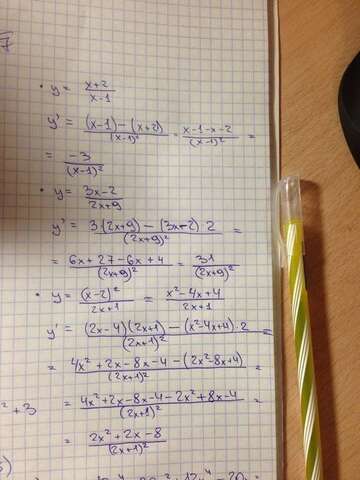 7
• y = (x+2)/(x-1)
y' = ((x-1)-(x+2))/(x-1)² = (x-1-x-2)/(x-1)² =
= -3/(x-1)²
• y = (3x-2)/(2x+9)
y' = (3(2x+9)-(3x-2)2)/(2x+9)² =
= (6x+27-6x+4)/(2x+9)² = 31/(2x+9)²
• y = (x-2)²/(2x+1) = (x²-4x+4)/(2x+1)
y' = ((2x-4)(2x+1)-(x²-4x+4)·2)/(2x+1)² =
= (4x²+2x-8x-4-(2x²-8x+4))/(2x+1)² =
² + 3
= (4x²+2x-8x-4-2x²+8x-4)/(2x+1)² =
= (2x²+2x-8)/(2x+1)²